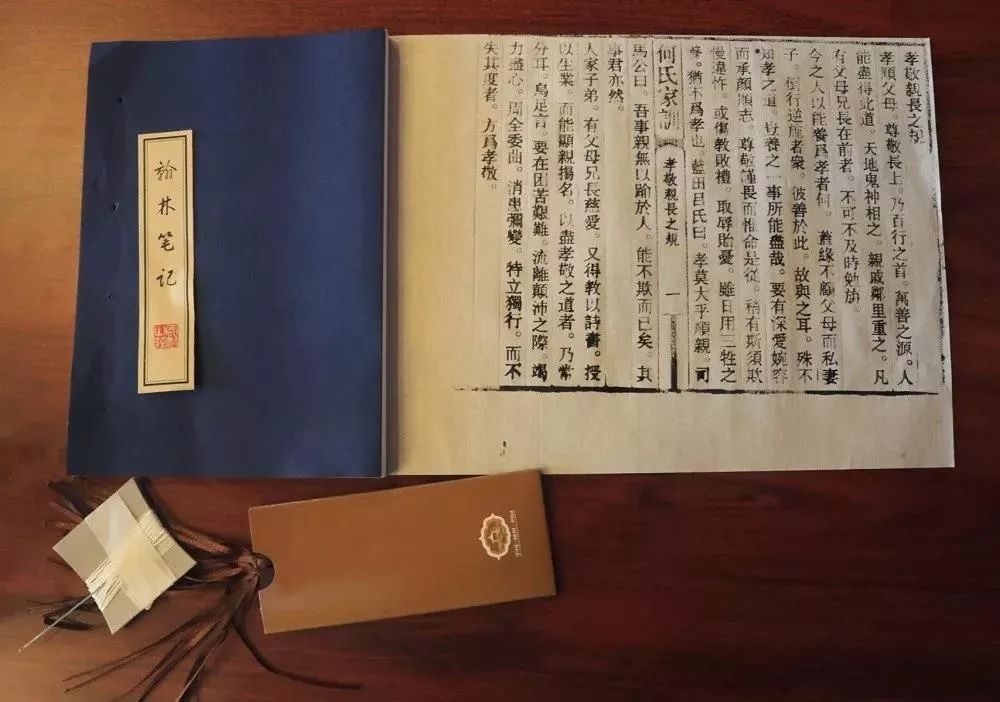 孝敬親長之規
孝順父母。尊敬長上。乃百行之首。萬善之源。人
能盡得此道。天地鬼神相之。親戚鄰里重之。凡
有父母兄長在前者。不可不及時勉旃。
今之人以能養爲孝者何。蓋緣不顧父母而私妻
子。倒行逆施者衆。彼善於此。故與之耳。殊不
知孝之道。豈養之一事所能盡哉。要有深愛婉容
而承顏順志。尊敬謹畏而惟命是從。稍有斯須欺
慢違忤。或傷教敗禮。取辱貽憂。雖日用三牲之
養。猶不爲孝也。藍田呂氏曰。孝莫大乎順親。司
何氏家訓 孝敬親長之規 一
馬公曰。吾事親無以踰於人。能不欺而已矣。其
事君亦然。
人家子弟。有父母兄長慈愛。又得教以詩書。授
以生業。而能顯親揚名。以盡孝敬之道者。乃常
分耳。烏足言。要在困苦艱難。流離顛沛之際。竭
力盡心。周全委曲。消患彌變。特立獨行。而不
失其度者。方爲孝敬。
翰林笔记